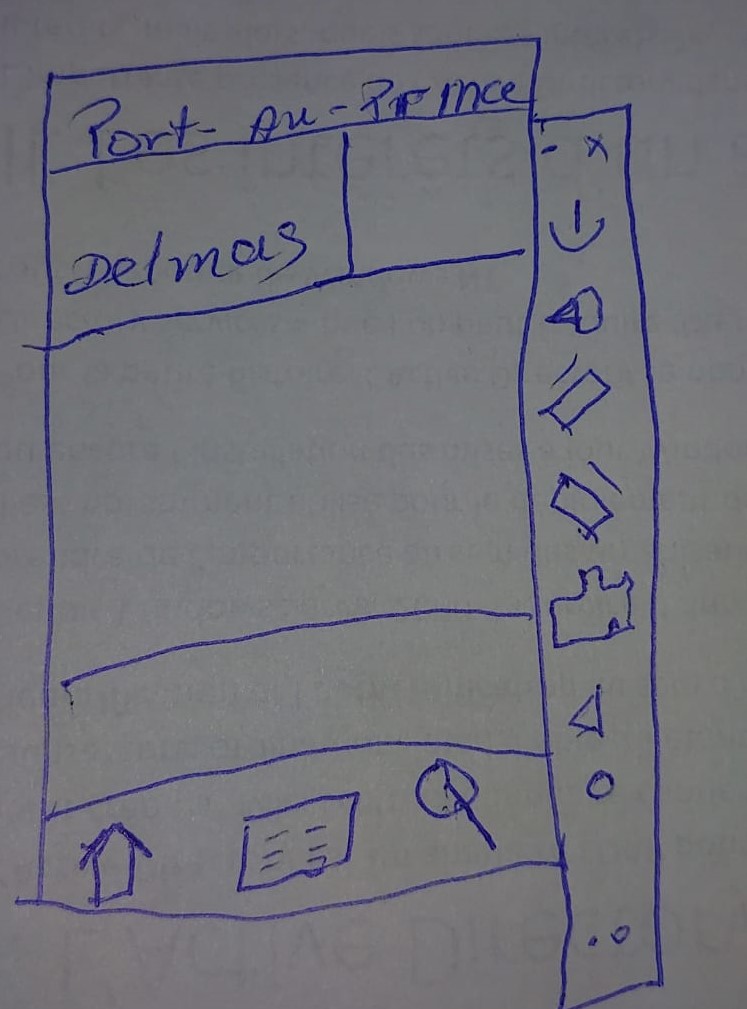 Port-Au-Prince
Delmas